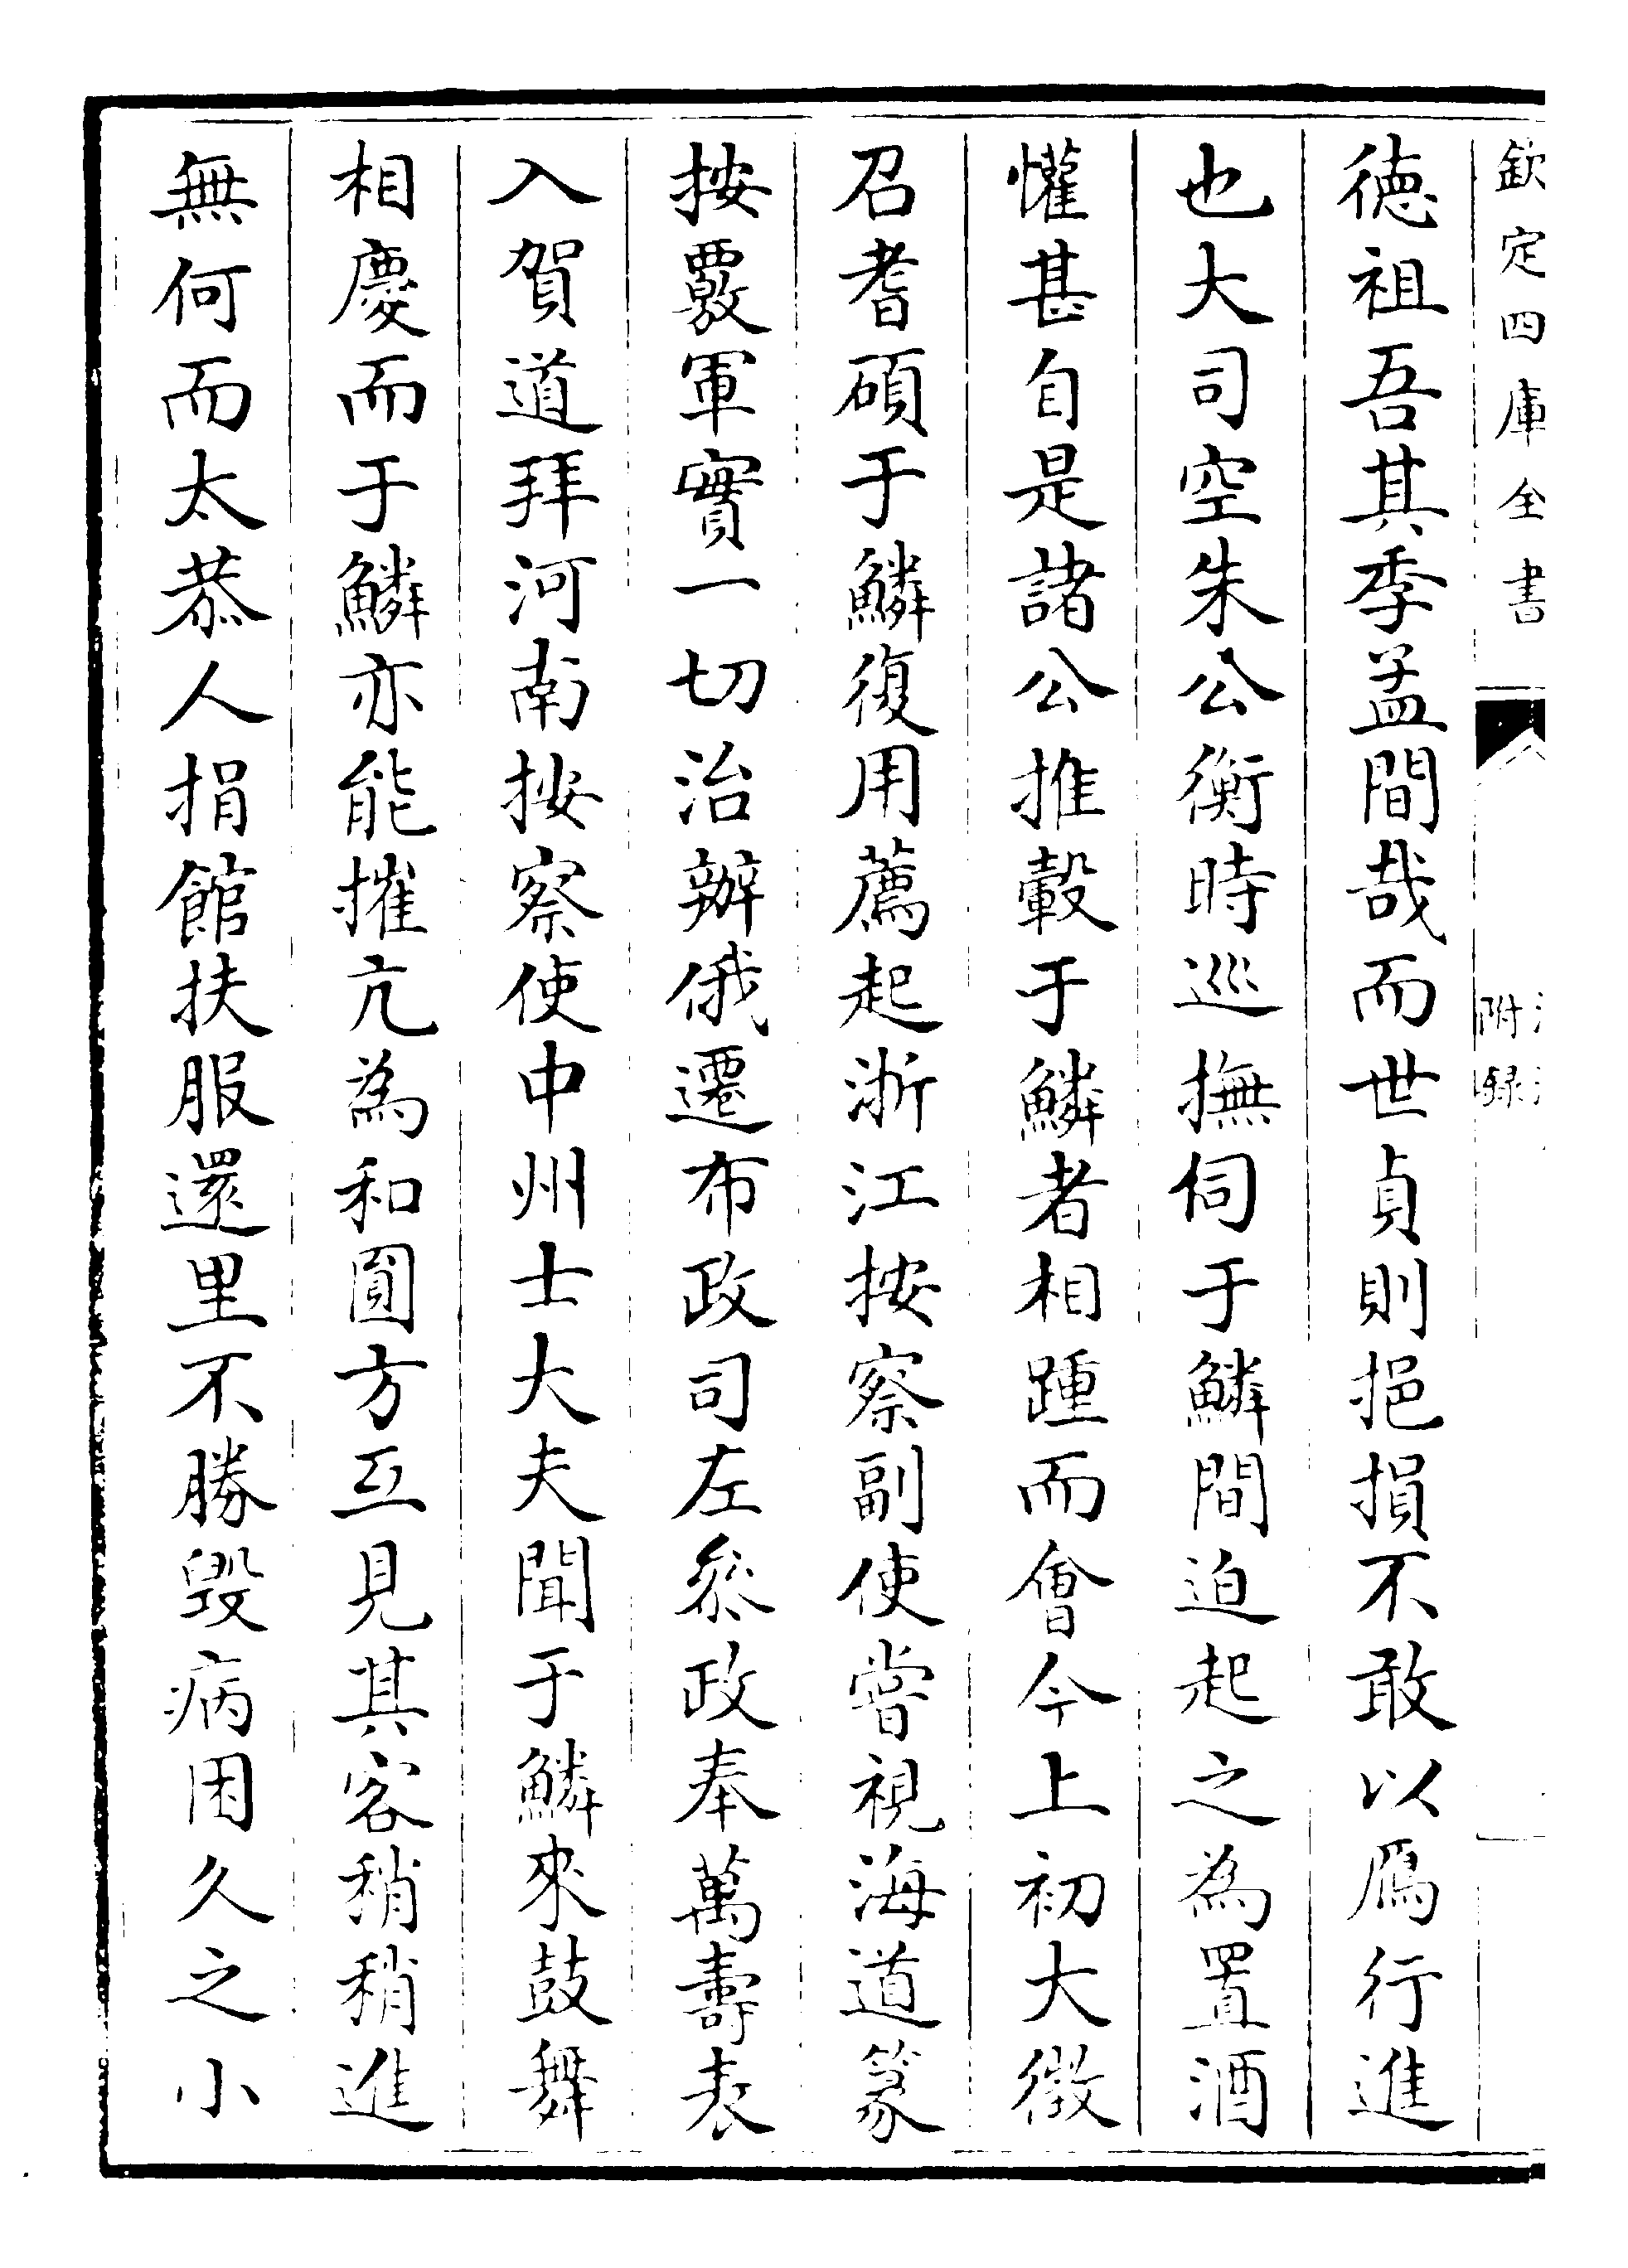 欽定四庫全書
附録
德祖吾其季孟間哉而世貞則挹損不敢以鴈行進
也大司空朱公衡時巡撫伺于鱗間迫起之為置酒
懽甚自是諸公推轂于鱗者相踵而會今上初大徴
召耆碩于鱗復用薦起浙江按察副使嘗視海道篆
按覈軍實一切治辦俄遷布政司左叅政奉萬壽表
入賀道拜河南按察使中州士大夫聞于鱗來鼓舞
相慶而于鱗亦能摧亢為和圓方互見其客稍稍進
無何而太恭人捐館扶服還里不勝毀病困久之小